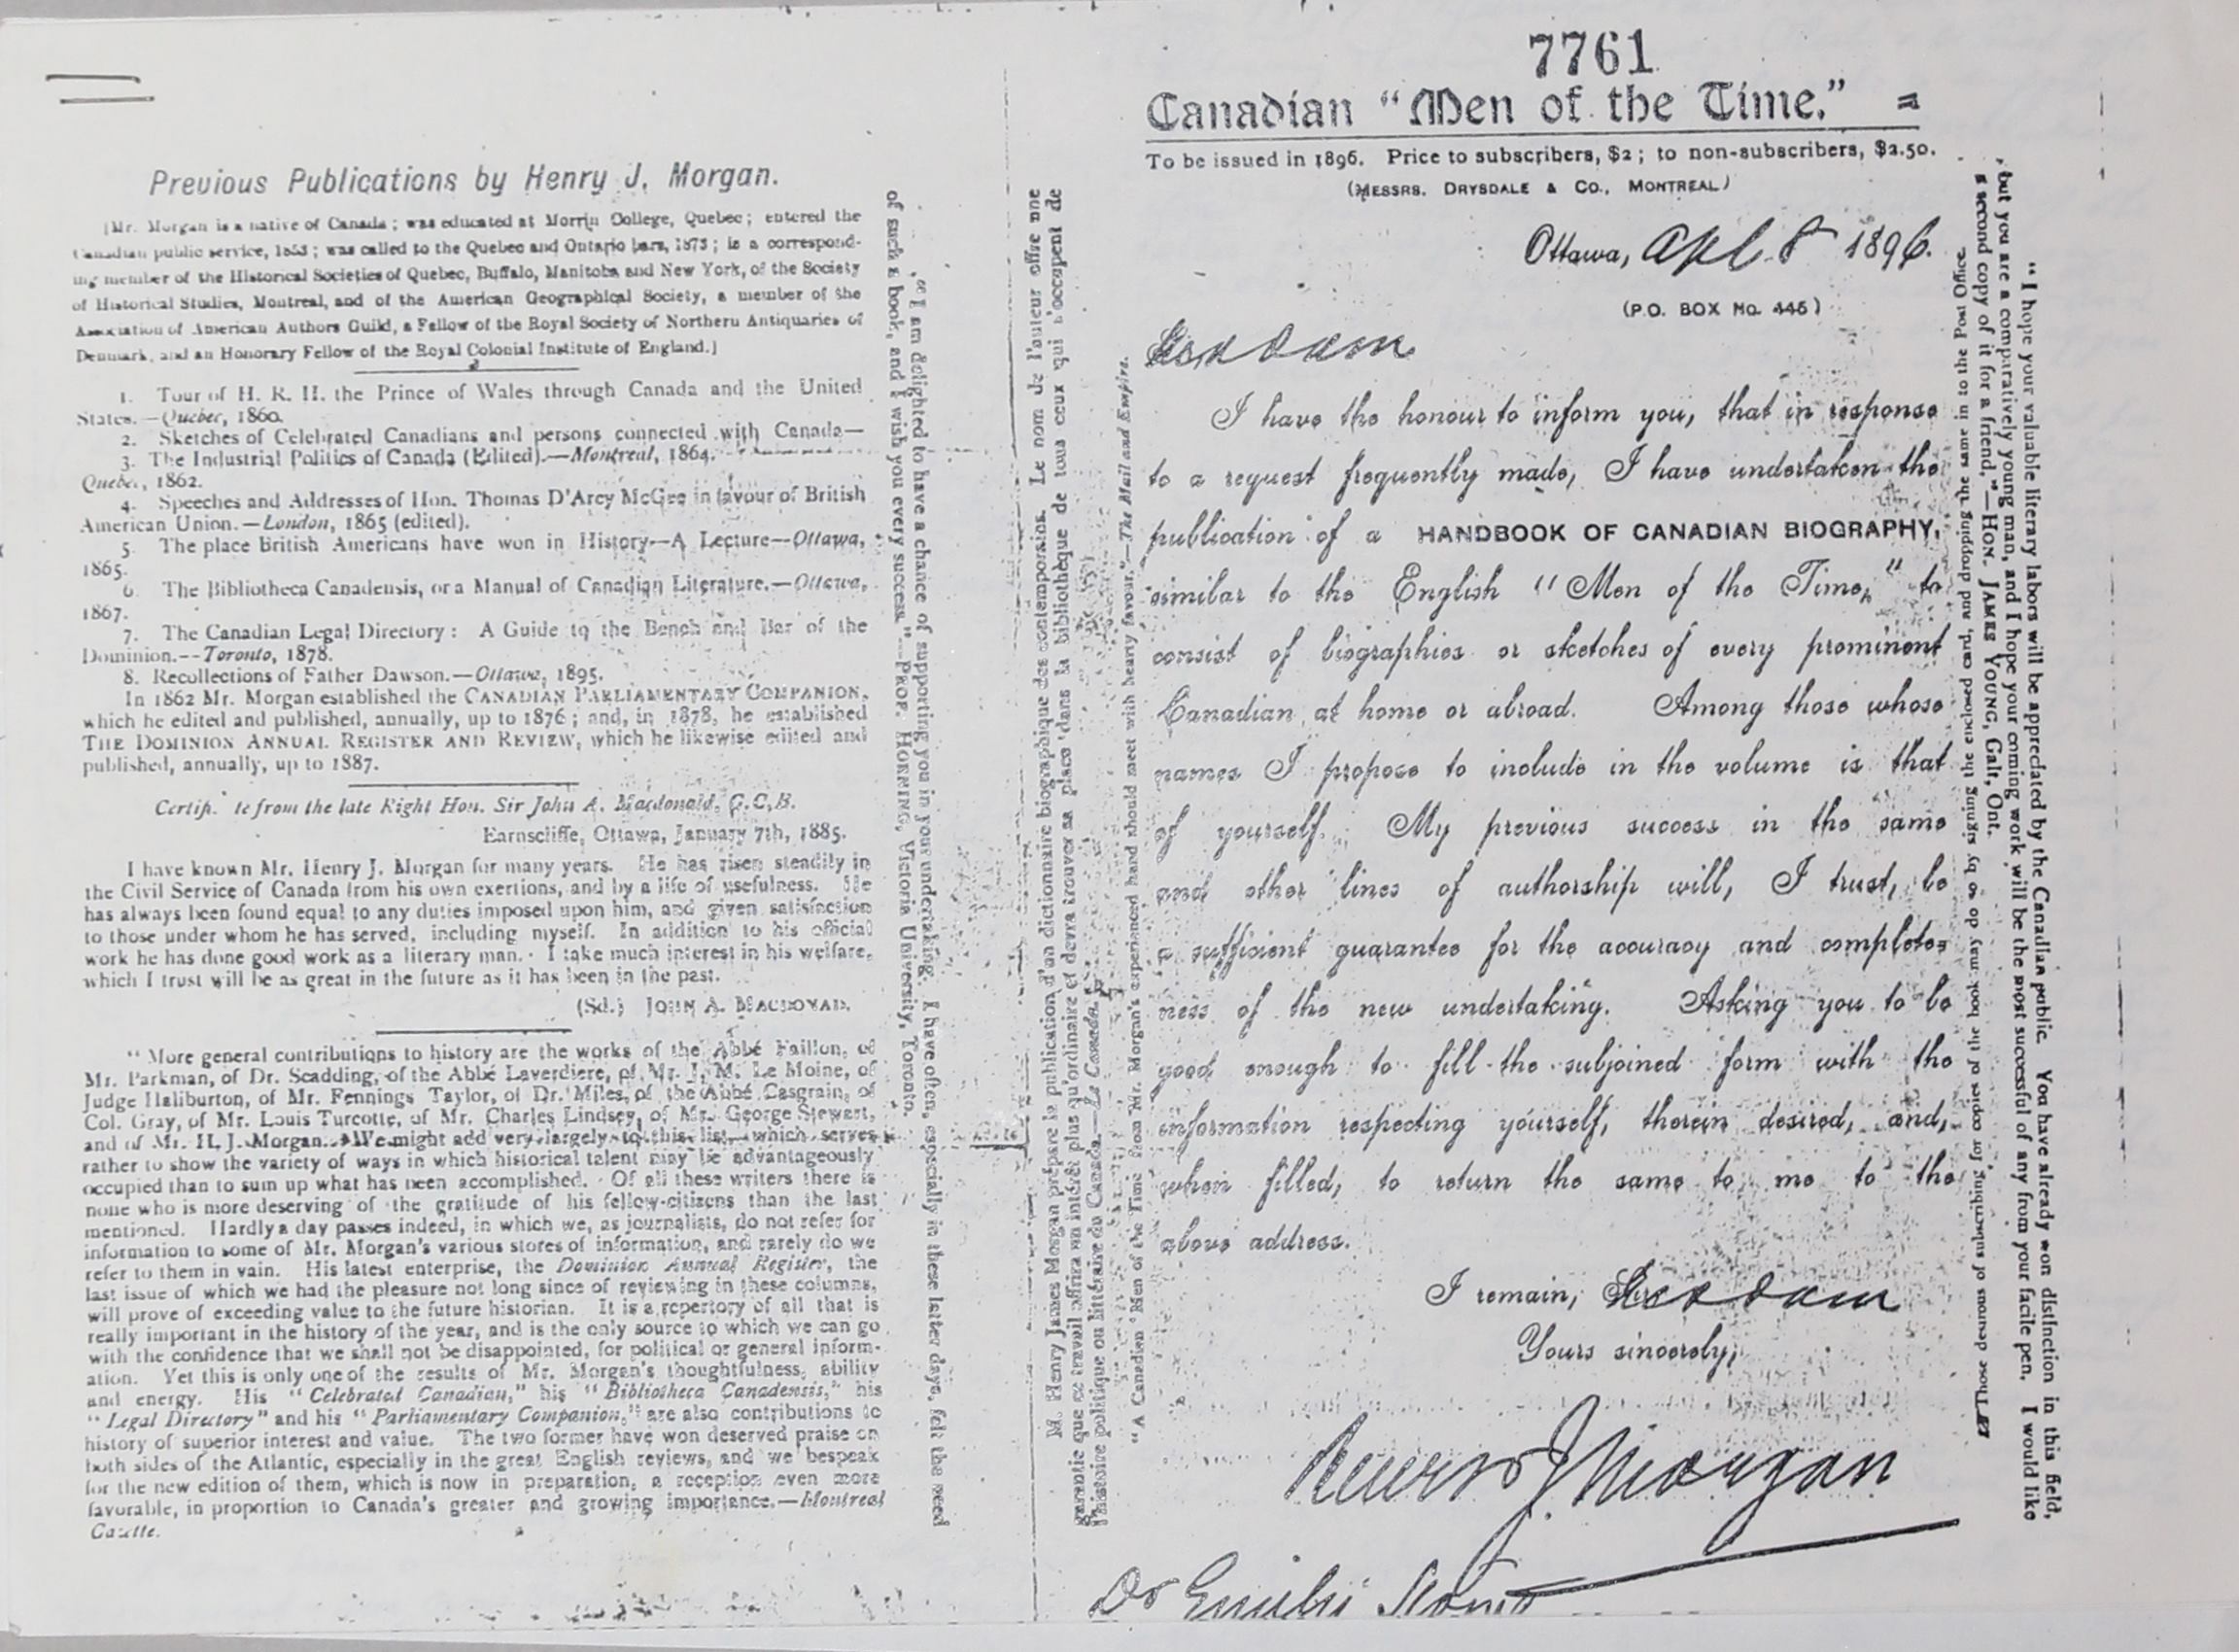 Previous Publications by Henry J. Morgan.
[Mr. Morgan is a native of Canada; was educated at Morrin College, Quebec; entered the
Canadian public service, 1853; was called to the Quebec and Ontario bars, 1873; is a correspond-
ing member of the Historical Societies of Quebec, Buffalo, Manitoba and New York, of the Society
of Historical Studies, Montreal, and of the American Geographical Society, a member of the
Association of American Authors Guild, a Fellow of the Royal Society of Northern Antiquaries of
Denmark, and an Honorary Fellow of the Royal Colonial Institute of England.]
1. Tour of H. R. H. the Prince of Wales through Canada and the United
States.—Quebec, 1860.
2. Sketches of Celebrated Canadians and persons connected with Canada—
3. The Industrial Politics of Canada (Edited).—Montreal, 1864.
Quebec, 1862.
4. Speeches and Addresses of Hon. Thomas D'Arcy McGee in favour of British
American Union.—London, 1865 (edited).
5. The place British Americans have won in History—A Lecture—Ottawa,
1865.
6. The Bibliotheca Canadensis, or a Manual of Canadian Literature.—Ottawa,
1867.
7. The Canadian Legal Directory: A Guide to the Bench and Bar of the
Dominion.--Toronto, 1878.
8. Recollections of Father Dawson.—Ottawa, 1895.
In 1862 Mr. Morgan established the CANADIAN PARLIAMENTARY COMPANION,
which he edited and published, annually, up to 1876; and, in 1878, he established
THE DOMINION ANNUAL REGISTER AND REVIEW, which he likewise edited and
published, annually, up to 1887.
Certif. te from the late Right Hon. Sir John A. Macdonald, G.C.B.
Earnscliffe, Ottawa, January 7th, 1885.
I have known Mr. Henry J. Morgan for many years. He has risen steadily in
the Civil Service of Canada from his own exertions, and by a life of usefulness. He
has always been found equal to any duties imposed upon him, and given satisfaction
to those under whom he has served, including myself. In addition to his official
work he has done good work as a literary man. I take much interest in his welfare,
which I trust will be as great in the future as it has been in the past.
(Sd.) JOHN A. MACDONALD.
"More general contributions to history are the works of the Abbé Faillon, of
Mr. Parkman, of Dr. Scadding, of the Abbé Laverdiere, of Mr. J. M. Le Moine, of
Judge Haliburton, of Mr. Fennings Taylor, of Dr. Miles, of the Abbé Casgrain, of
Col. Gray, of Mr. Louis Turcotte, of Mr. Charles Lindsey, of Mr. George Stewart,
and of Mr. H. J. Morgan. We might add very largely to this list, which serves
rather to show the variety of ways in which historical talent may be advantageously
occupied than to sum up what has been accomplished. Of all these writers there is
none who is more deserving of the gratitude of his fellow-citizens than the last
mentioned. Hardly a day passes indeed, in which we, as journalists, do not refer for
information to some of Mr. Morgan's various stores of information, and rarely do we
refer to them in vain. His latest enterprise, the Dominion Annual Register, the
last issue of which we had the pleasure not long since of reviewing in these columns,
will prove of exceeding value to the future historian. It is a repertory of all that is
really important in the history of the year, and is the only source to which we can go
with the confidence that we shall not be disappointed, for political or general inform-
ation. Yet this is only one of the results of Mr. Morgan's thoughtfulness, ability
and energy. His "Celebrated Canadian," his "Bibliotheca Canadensis," his
"Legal Directory" and his "Parliamentary Companion," are also contributions to
history of superior interest and value. The two former have won deserved praise on
both sides of the Atlantic, especially in the great English reviews, and we bespeak
for the new edition of them, which is now in preparation, a reception even more
favorable, in proportion to Canada's greater and growing importance.—Montreal
Gazette.
"I am delighted to have a chance of supporting you in your undertaking. I have often, especially in these latter days, felt the need
of such a book, and I wish you every success."—PROF. HORNING, Victoria University, Toronto.
M. Henry James Morgan prépare la publication d'un dictionnaire biographique des contemporains. Le nom de l'auteur offre une
garantie que ce travail offrira un intérêt plus qu'ordinaire et devra trouver sa place dans la bibliothèque de tous ceux qui s'occupent de
l'histoire politique ou littéraire du Canada.—Le Canada.
"A Canadian 'Men of the Time' from Mr. Morgan's experienced hand should meet with hearty favour."—The Mail and Empire.
7761
Canadian "Men of the Time."
To be issued in 1896. Price to subscribers, $2; to non-subscribers, $2.50.
(MESSRS. DRYSDALE & CO., MONTREAL)
Ottawa, Apl. 8 1896.
(P.O. BOX No. 445)
Madam
I have the honour to inform you, that in response
to a request frequently made, I have undertaken the
publication of a HANDBOOK OF CANADIAN BIOGRAPHY,
similar to the English "Men of the Time," to
consist of biographies or sketches of every prominent
Canadian at home or abroad. Among those whose
names I propose to include in the volume is that
of yourself. My previous success in the same
and other lines of authorship will, I trust, be
a sufficient guarantee for the accuracy and complete-
ness of the new undertaking. Asking you to be
good enough to fill the subjoined form with the
information respecting yourself, therein desired, and,
when filled, to return the same to me to the
above address.
I remain, Madam
Yours sincerely,
Henry J Morgan
Dr Emily Stowe
Those desirous of subscribing for copies of the book may do so by signing the enclosed card, and dropping the same in to the Post Office.
"I hope your valuable literary labors will be appreciated by the Canadian public. You have already won distinction in this field,
but you are a comparatively young man, and I hope your coming work will be the most successful of any from your facile pen. I would like
a second copy of it for a friend."—HON. JAMES YOUNG, Galt, Ont.